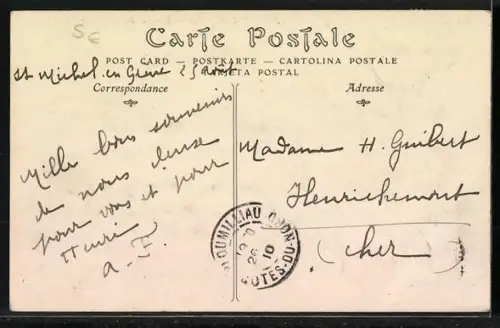 5€
Carte Postale
POST CARD — POSTKARTE — CARTOLINA POSTALE
TARJETA POSTAL
St Michel en Grève 25 août
Correspondance
Mille bons souvenirs
de nous deux
pour vous et pour
Henri
a-F
Adresse
Madame H. Guibert
Henrichemont
(Cher)
PLOUMILLIAU
26
10
COTES-DU-NORD